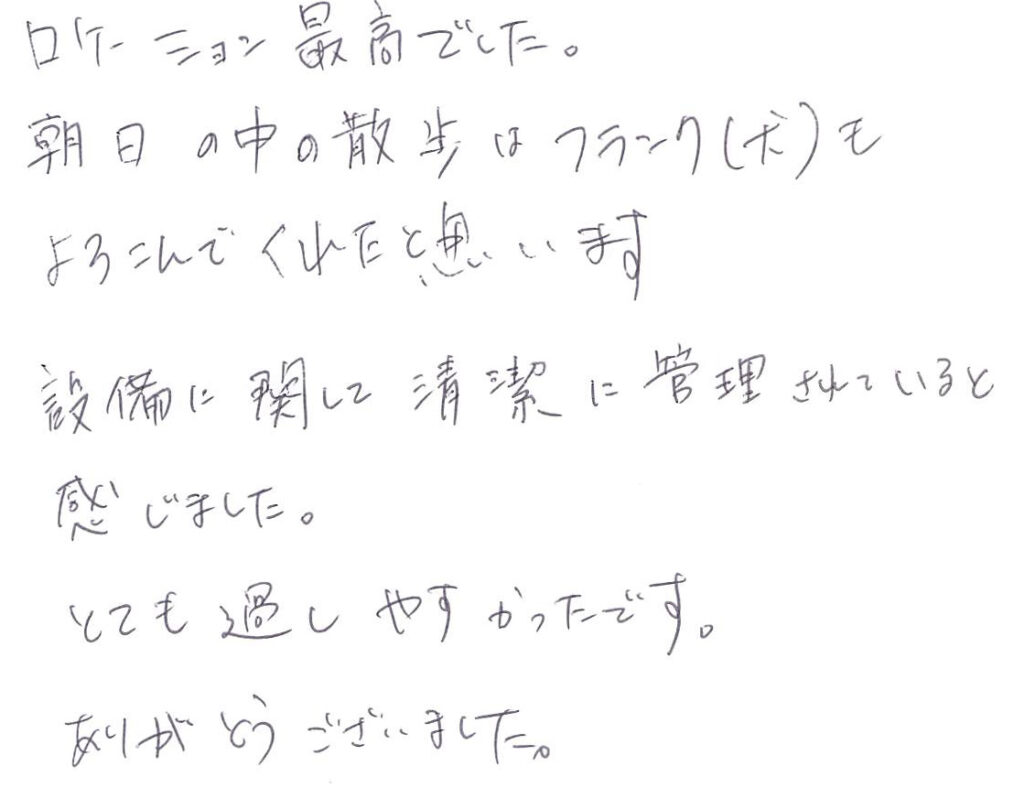 ロケーション最高でした。
朝日の中の散歩はフランク(犬)も
よろこんでくれたと思います
設備に関して清潔に管理されていると
感じました。
とても過しやすかったです。
ありがとうございました。